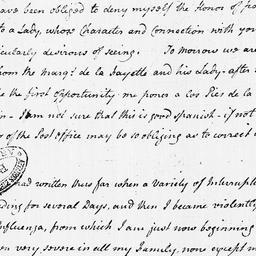 have been obliged to deny myself the Honor of pa
to a Lady, whose Character and Connection with you
icularly desirous of seeing. To morrow we are
from the marqs de la Fayette and his Lady - after
be the first opportunity me pones a Los Pies de la
n - I am not sure that this is good Spanish - if not
of the Post office may be so obliging as to correct i
had written thus far when a Variety of Interrupti
ding for several Days, and then I became violently
nfluenza, from which I am just now beginning
en very severe in all my Family, none except m